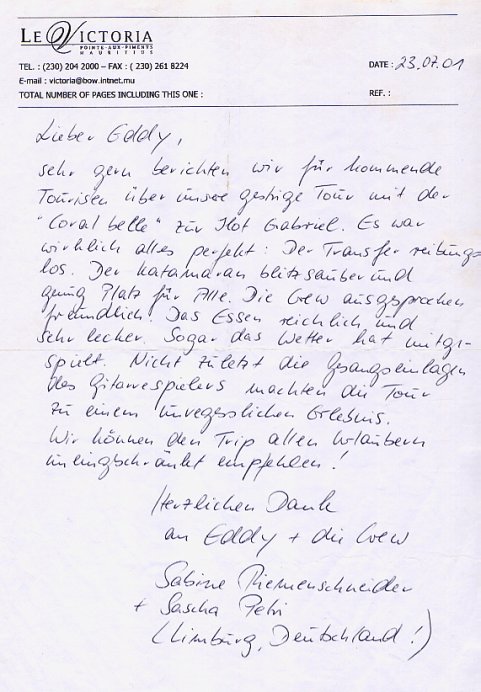 LE VICTORIA
POINTE-AUX-PIMENTS
MAURITIUS
TEL. : (230) 204 2000 – FAX : ( 230) 261 8224
E-mail : victoria@bow.intnet.mu
TOTAL NUMBER OF PAGES INCLUDING THIS ONE :
DATE : 23.07.01
REF. :
Lieber Eddy,
sehr gern berichten wir für kommende
Tourisen über unsere gestrige Tour mit der
"Coral belle" zur Ilot Gabriel. Es war
wirklich alles perfekt: Der Transfer reibungs
los. Der Katamaran blitzsauber und
genug Platz für Alle. Die Crew ausgesprochen
freundlich. Das Essen reichlich und
sehr lecker. Sogar das Wetter hat mitge-
spielt. Nicht zuletzt die Gesangseinlagen
des Gitarrespielers machten die Tour
zu einem unvergesslichen Erlebnis.
Wir können den Trip allen Urlaubern
uneingschränkt empfehlen!
Herzlichen Dank
an Eddy + die Crew
Sabine Riemenschneider
+ Sascha Petri
(Limburg, Deutschland!)